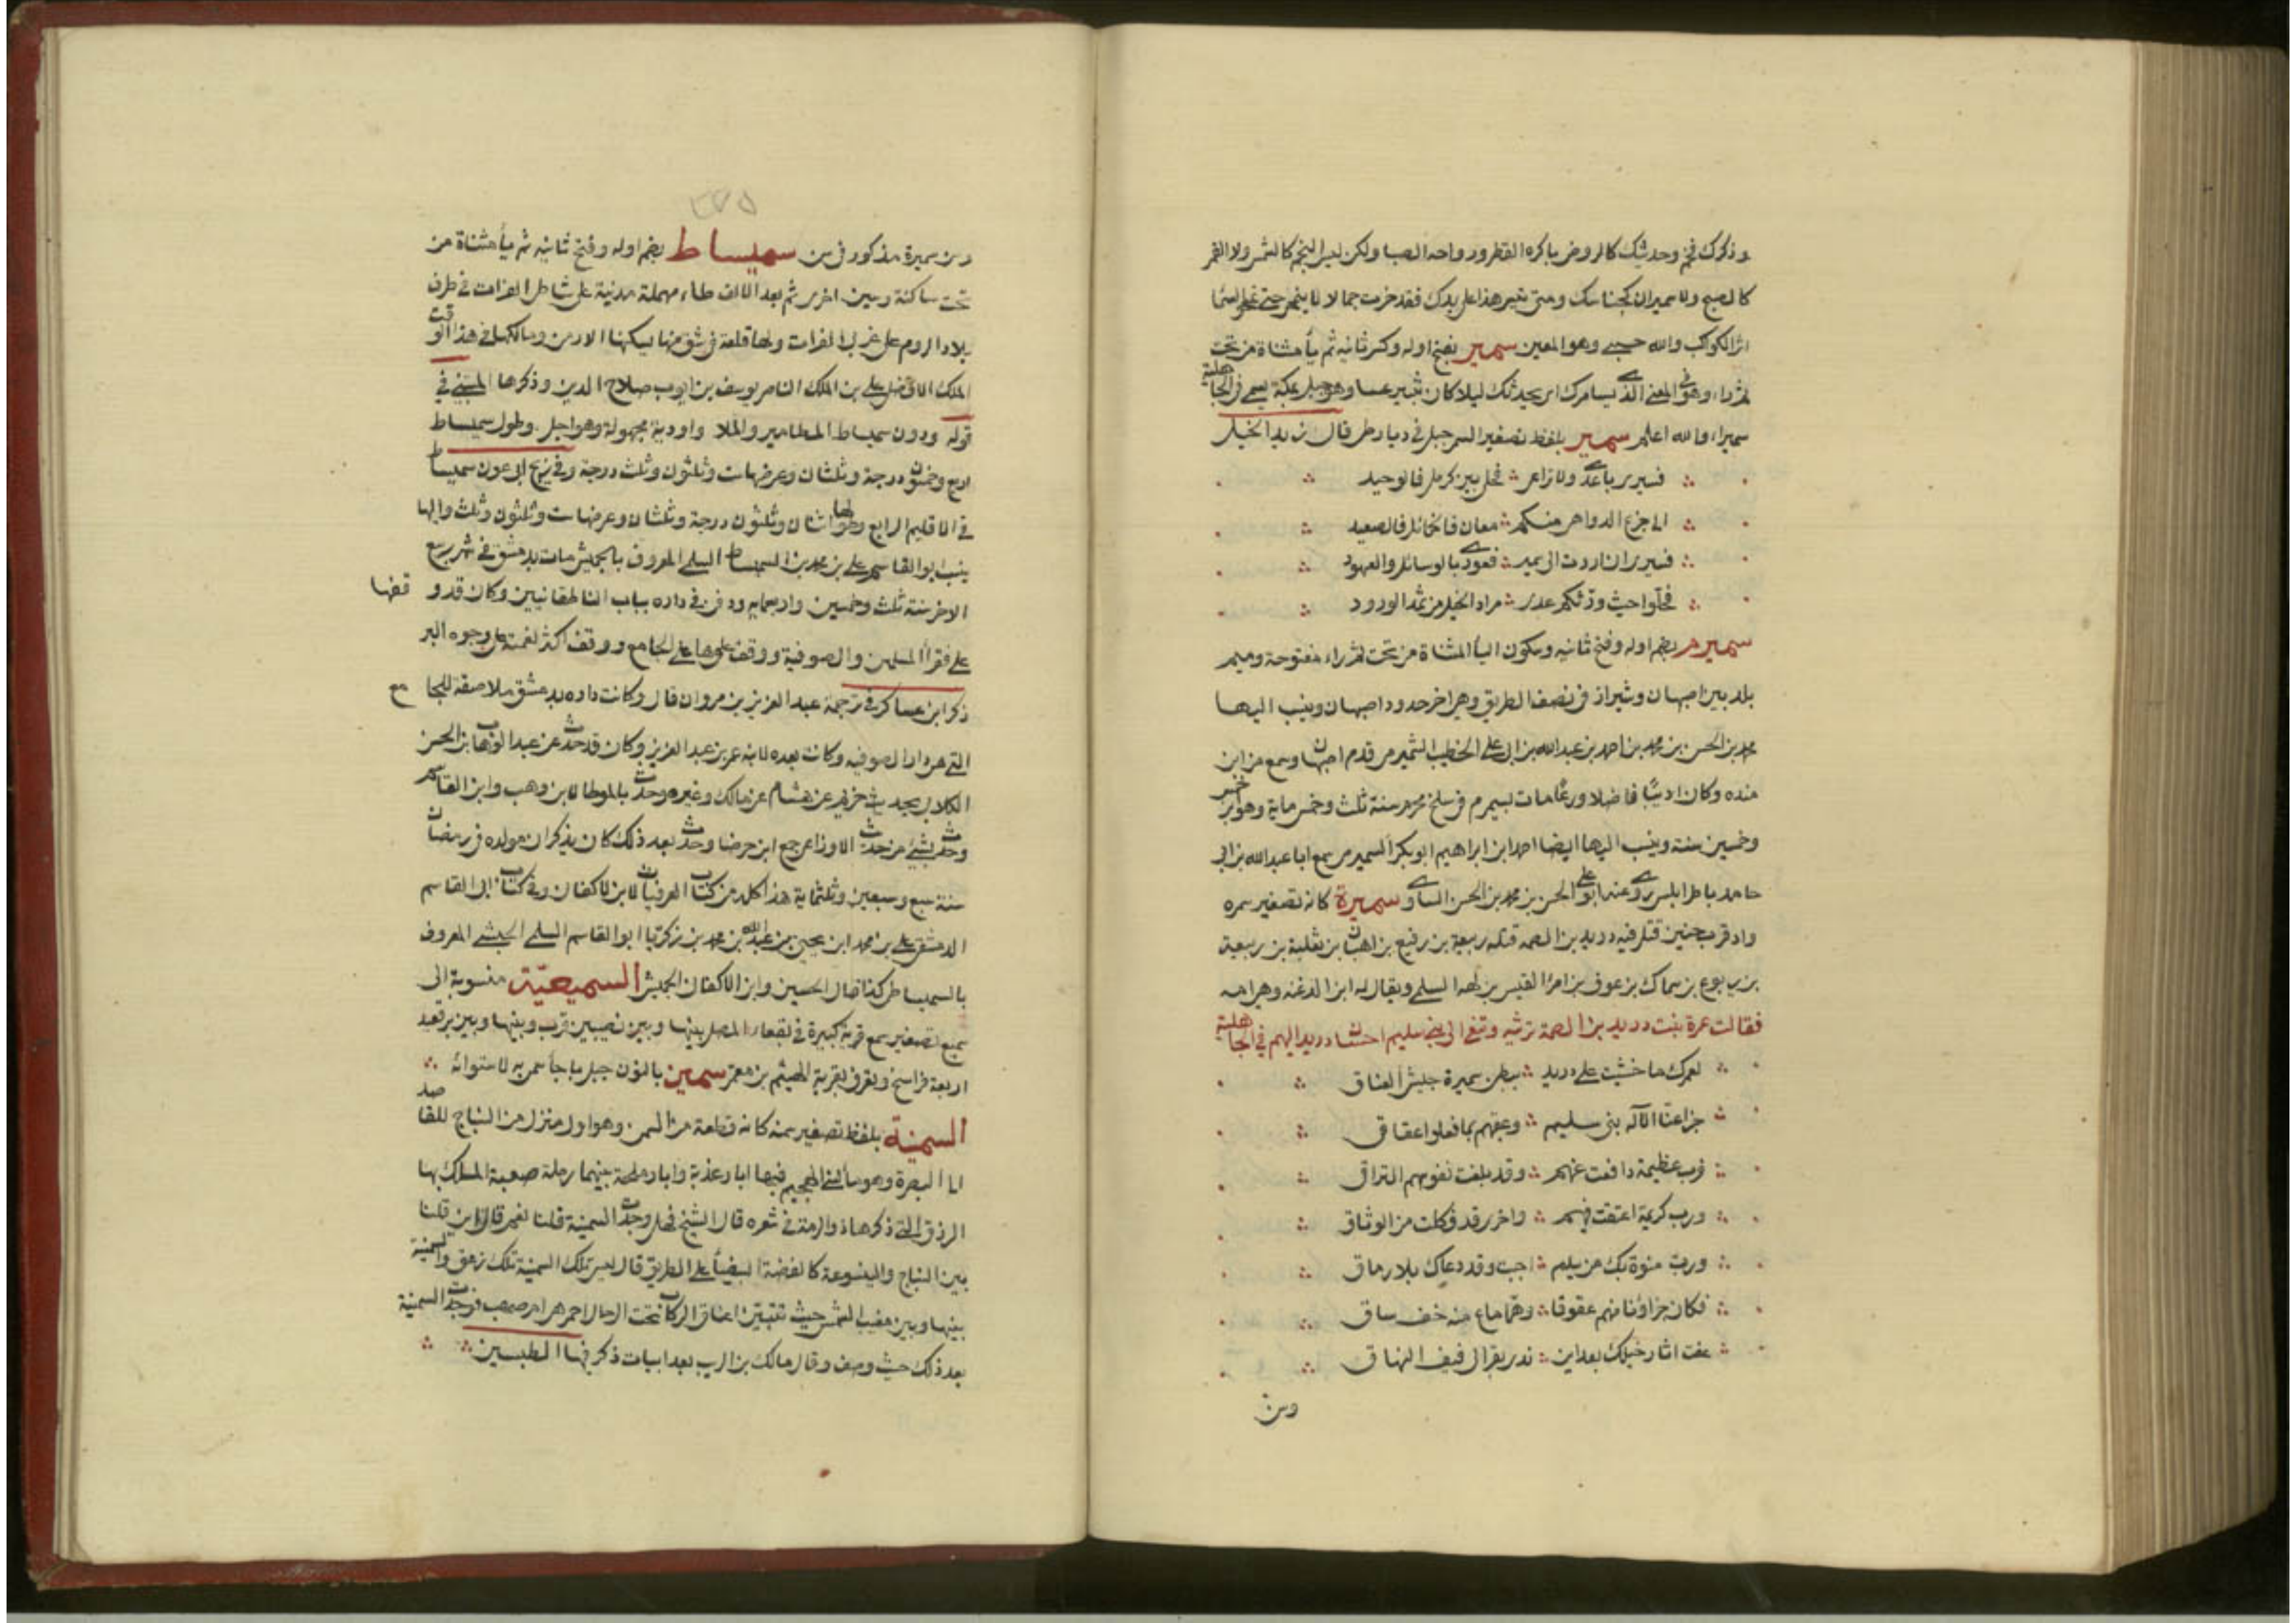 وذكرك فخم وحديثك كالروض باكره القطر وروادحه الصبا ولكن ليس النجم كالشمس ولا القمر
كالصبح ولا سميران كجناسك ومتى تغير هذا على يدك فقد حزت جمالا لا ينمحى حتى تمحى السما
اثر الكواكب والله حسبى وهو المعين سمير بفتح اوله وكسر ثانيه ثم يأ مثناة من تحت
ثم راء وهو فى المعنى الذى يسامرك اى يحدثك ليلا كان ثبير عسا وهو جبل بمكة يسمى فى الجاهلية
سميرا والله اعلم سمير بلفظ تصغير السمر جبل فى ديار طى قال زيد الخيل
فسيرى يا عدى ولا تراعى فحلى بين كرمل فالوحيد
الى جزع الدواهى منكم معان فالخمائل فالصعيد
فسيرى ان اردت الى سمير فعودى بالوسائل والعهود
فحلوا حيث ورثكم عدى مراد الخيل من ثمد الورود
سميرم بضم اوله وفتح ثانيه وسكون اليأ المثناة من تحت ثم راء مفتوحة وميم
بلد بين اصبهان وشيراز فى نصف الطريق وهى اخر حدود اصبهان وينسب اليها
محمد بن الحسن بن محمد بن احمد بن عبد الله بن ابى على الخطيب السميرمى قدم اصبهان وسمع من ابن
منده وكان اديبًا فاضلا ورعًا مات بسميرم فى سلخ محرم سنة ثلث وخمس ماية وهو ابن خمس
وخمسين سنة وينسب اليها ايضا احمد ابن ابراهيم ابو بكر السميرمى سمع ابا عبد الله بن ابى
حامد باطرابلس روى عنه ابو على الحسن بن محمد بن الحسن الساوى سميرة كانه تصغير سمره
واد قرب حنين قتل فيه دريد بن الصمه قتله ربيعة بن رفيع بن اهبان بن ثعلبة بن ربيعة
بن يربوع بن سماك بن عوف بن امرأ القيس بن بهثة السلمى ويقال له ابن الدغنه وهى امه
فقالت عمرة بنت دريد بن الصمة ترثيه وتنعى الى بنى سليم احسان دريد اليهم فى الجاهلية
لعمرك ما خشيت على دريد ببطن سميرة جيش العناق
جزا عنا الاله بنى سليم وعقهم بما فعلوا عقاق
فرب عظيمة دافعت عنهم وقد بلغت نفوسهم التراقى
ورب كريمة اعتقت فيهم واخرى قد فككت من الوثاق
ورب منوه بك من سليم اجبت وقد دعاك بلا رماق
فكان جزاؤنا منهم عقوقا وهما ماع منه خف ساق
عفت اثار خيلك بعد اين بذى بقر الى فيف النهاق
وسن
٢٧٥
وسن سميرة مذكور فى سن سميساط بضم اوله وفتح ثانيه ثم يأ مثناة من
تحت ساكنة وسين اخرى ثم بعد الالف طاء مهملة مدينة على شاطئ الفرات فى طرف
بلاد الروم على غربى الفرات ولها قلعة فى شق منها يسكنها الارمن ومالكها فى هذا الوقت
الملك الافضل على بن الملك الناصر يوسف بن ايوب صلاح الدين وذكرها المتنبى فى
قوله ودون سميساط المطامير والملا واودية مجهولة وهواجل وطول سميساط
اربع وخمسون درجة وثلثان وعرضها ست وثلثون وثلث درجة وفى زيج ابى عون سميساط
فى الاقليم الرابع وطولها اثنان وثلثون درجة وثلثان وعرضها ست وثلثون وثلث واليها
ينسب ابو القاسم على بن محمد بن السميساطى السلمى المعروف بالجميش مات بدمشق فى شهر ربيع
الاخر سنة ثلث وخمسين واربعمايه ودفن فى داره بباب الناطفانيين وكان قد وقفها
على فقرأ المسلمين والصوفية ووقف علوها على الجامع ووقف اكثر نعمته على وجوه البر
ذكر ابن عساكر فى ترجمة عبد العزيز بن مروان قال وكانت داره بدمشق ملاصقة للجامع
التى هى دار الصوفيه وكانت بعده لابنه عمر بن عبد العزيز وكان قد حدث عن عبد الوهاب بن الحسن
الكلابى بحديث خريم عن هشام عن مالك وغيره وحدث بالموطا لابن وهب وابن القاسم
وحدث بشئ من حديث الاوزاعى جمع ابن جوصا وحدث بعد ذلك كان يذكر ان مولده فى رمضان
سنة سبع وسبعين وثلثماية هذا كله من كتاب الوفيات لابن الاكفانى وفى كتاب ابى القاسم
الدمشقى على بن محمد ابن يحيى بن عبد الله بن محمد بن زكريا ابو القاسم السلمى الحبشى المعروف
بالسميساطى كذا قال الحسين وابن الاكفانى الجميش السميعيّة منسوبة الى
سميع تصغير سمع قرية كبيرة فى بقعاء الموصل بينها وبين نصيبين قرب وبينها وبين برقعيد
اربعة فراسخ وتعرف بقرية الهيثم بن معمر سمين بالنون جبل باجأ سمى به لاستوائه
السمينة بلفظ تصغير سمنه كانه قطعة من السمن وهو اول منزل من النباج للقاصد
الى البصرة وهو ماء لبنى الهجيم فيها ابار عذبة وابار ملحة بينهما رملة صعبة المسلك بها
الزرق التى ذكرها ذو الرمة فى شعره قال الشيخ فهل وجدت السمينة قلنا نعم قال اين قلنا
بين النباج والينسوعة كالفضة البيضأ على الطريق قال ليس تلك السمينة تلك زعق والسمينة
بينها وبين مغيب الشمس حيث تتبين اعناق الركاب تحت الرحال احمر هى ام صهب فوجدت السمينة
بعد ذلك حيث وصف وقال مالك بن الريب بعد ابيات ذكر فيها الطبسين